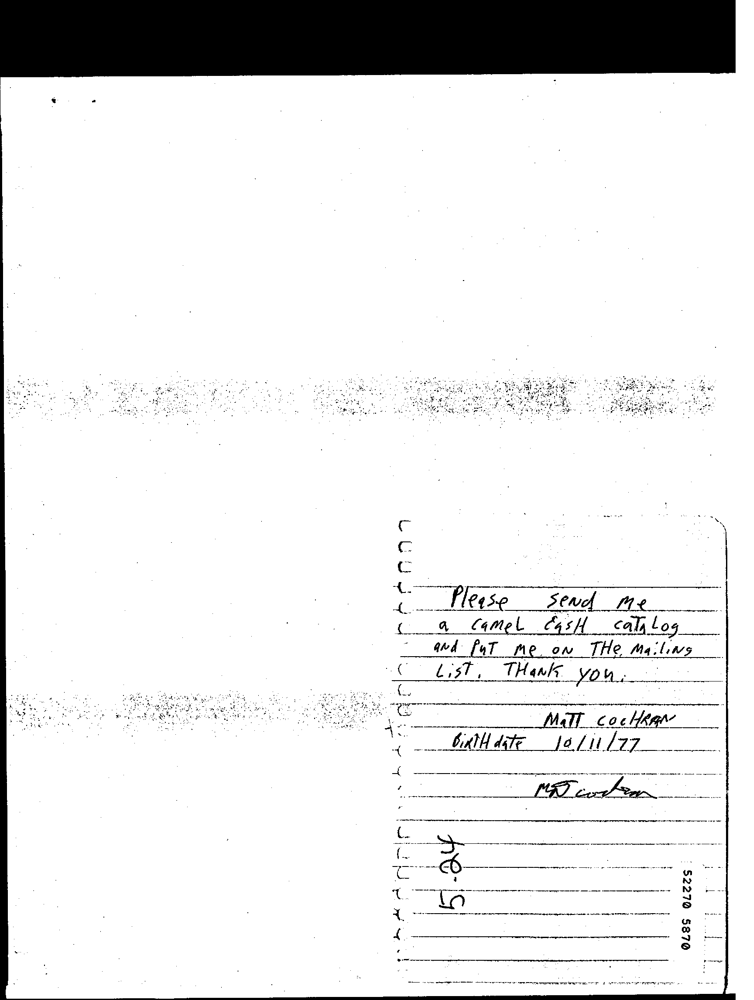 Please send me
a camel cash catalog
and put me on THe Mailing
List. THank you.
MaTT cocHRAN
BirTHdate 10/11/77
Matt cochran
52270 5870